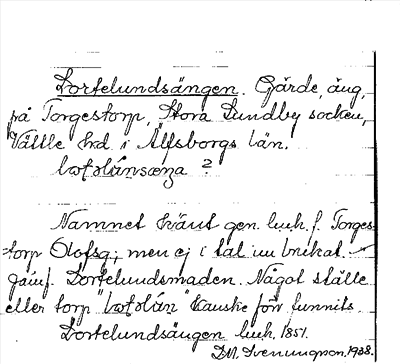 Lortelundsängen. Gärde, äng,
på Torgestorp, Stora Lundby socken,
Vättle hd i Älfsborgs län.
?
Namnet känt gen. lmh. f. Torges-
torp Olofsg; men ej i tal nu brukat. –
Jämf. Lortelundsmaden. Något ställe
eller torp kanske förr funnits.
Lortelundsängen lmh. 1851.
D.M. Svenungson. 1938.